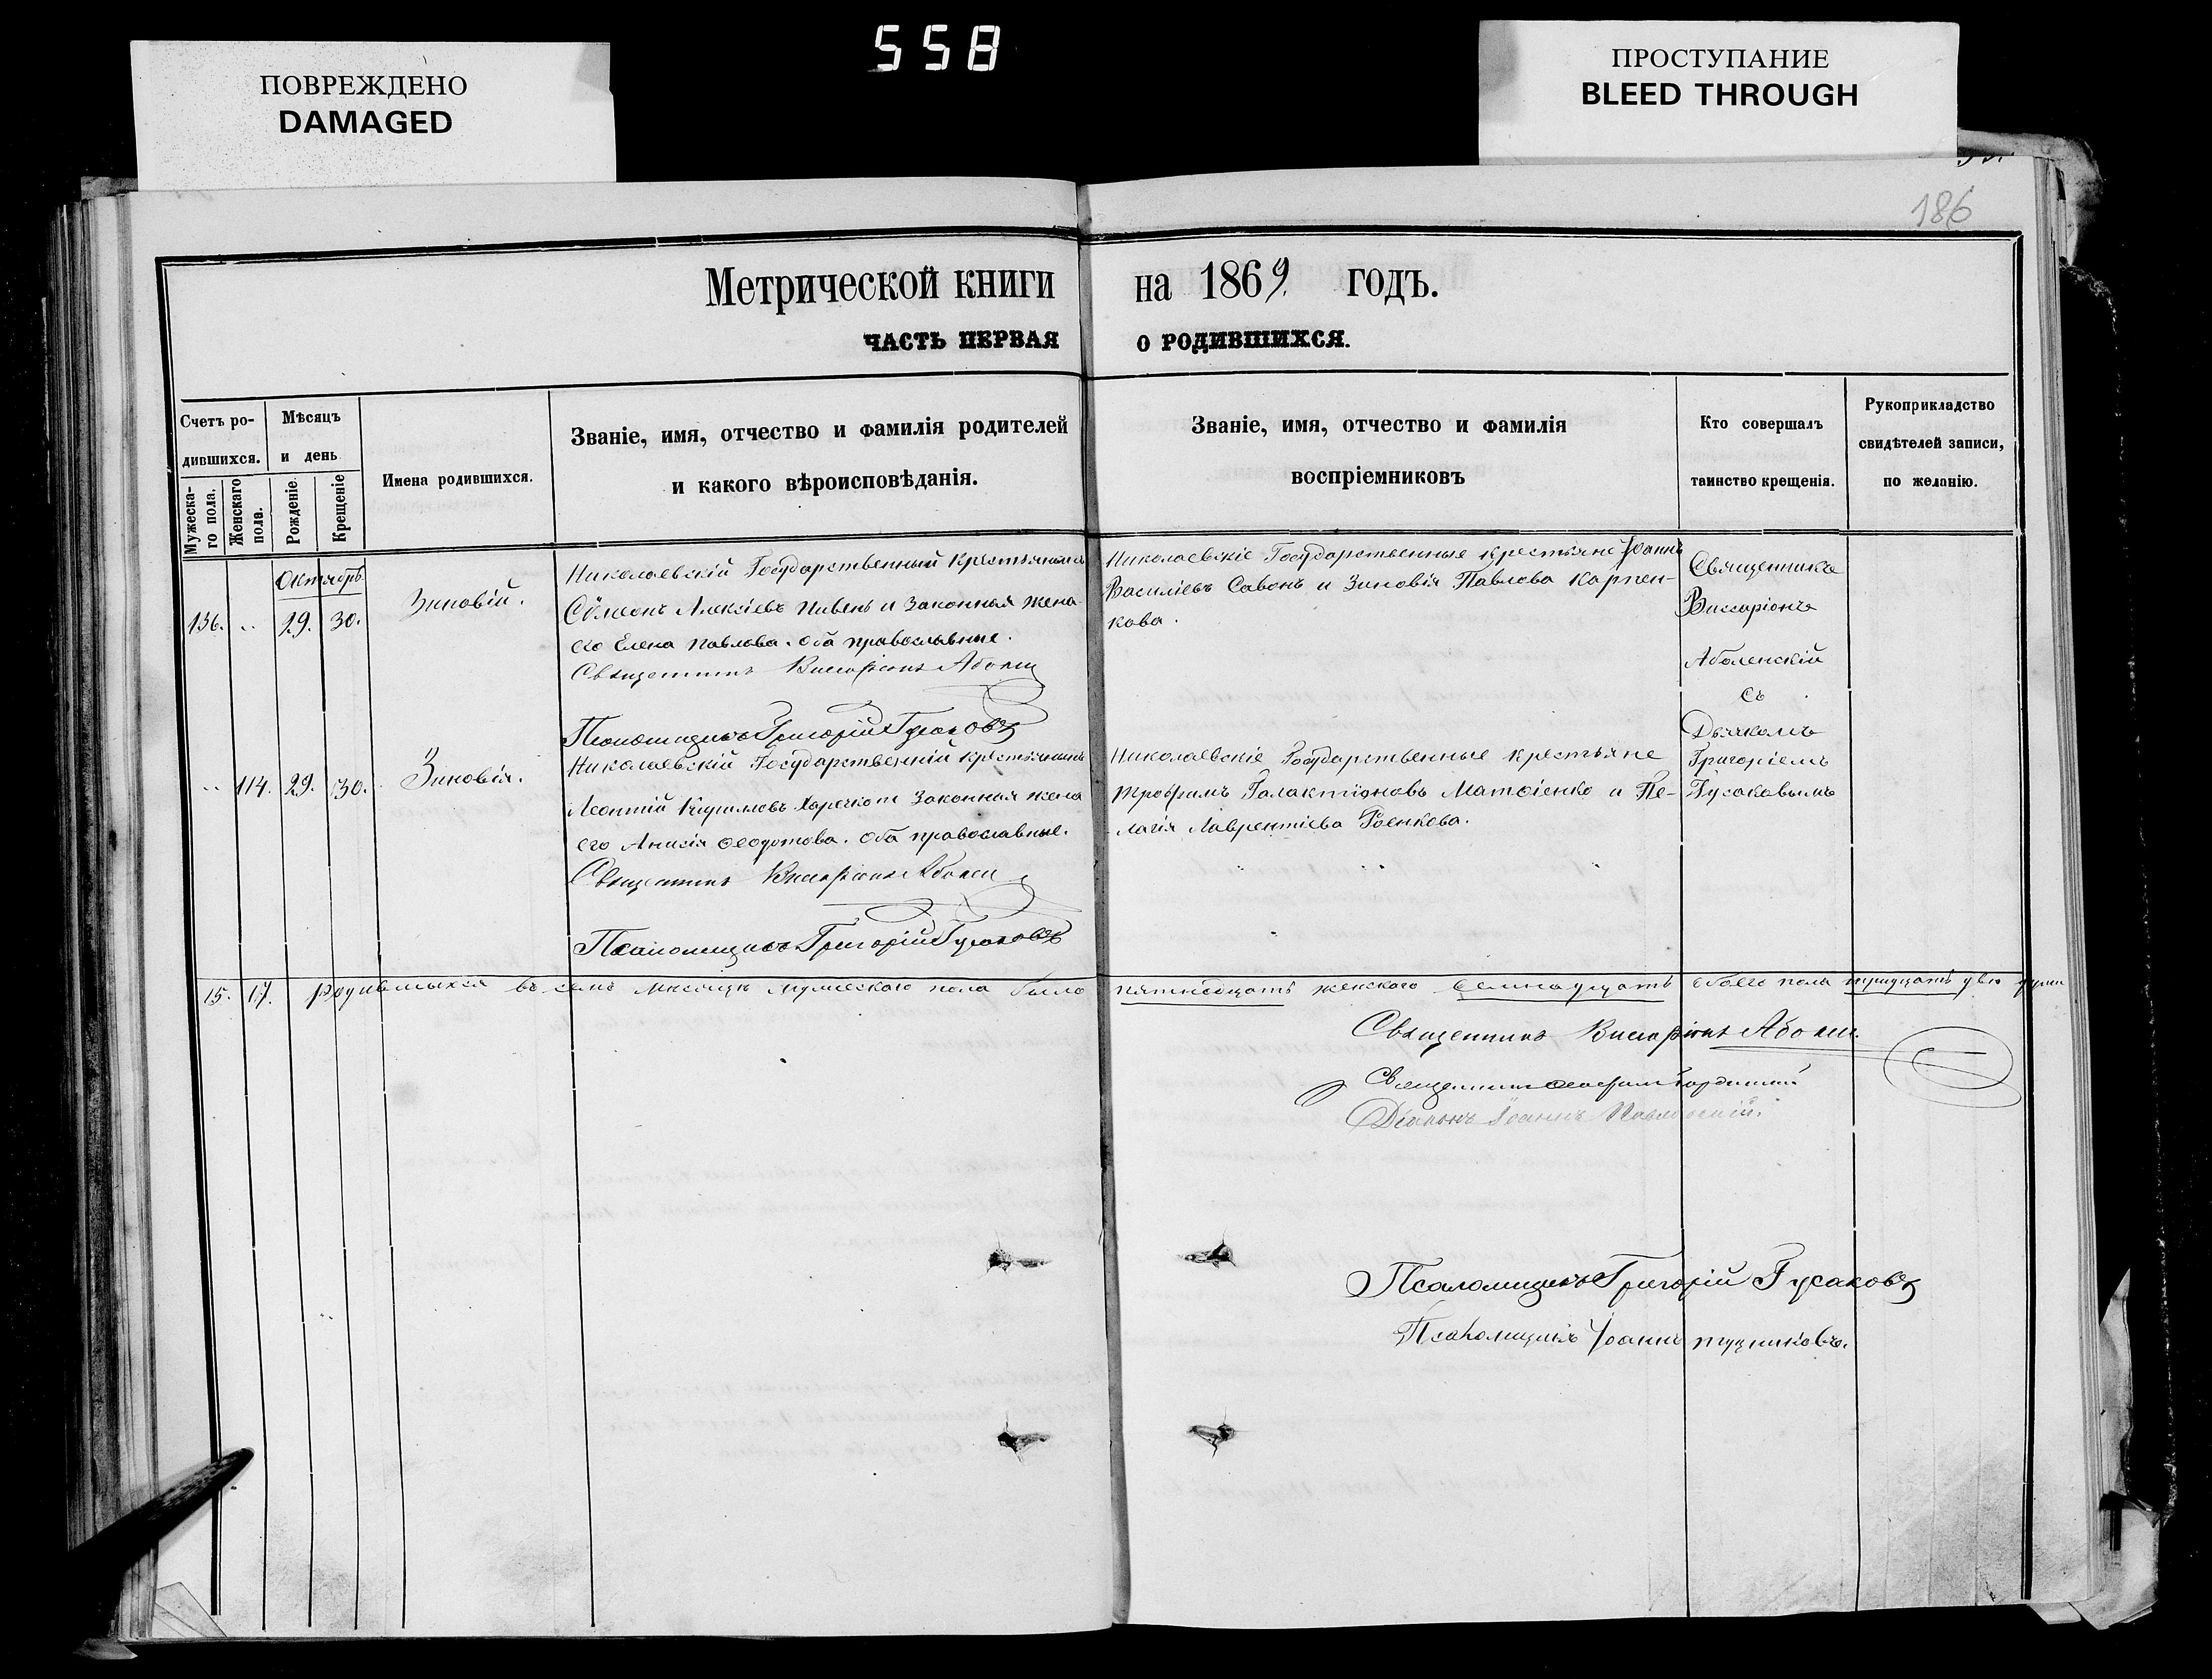 558
ПОВРЕЖДЕНО
DAMAGED
ПРОСТУПАНИЕ
BLEED THROUGH
186
Метрической книги на 1869. годъ.
ЧАСТЬ ПЕРВАЯ О РОДИВШИХСЯ.
Счетъ ро-
дившихся.
Мужеска-
го пола.
Женскаго
пола.
Мѣсяцъ
и день
Рожденіе.
Крещеніе
Имена родившихся.
Званіе, имя, отчество и фамилія родителей
и какого вѣроисповѣданія.
Званіе, имя, отчество и фамилія
воспріемниковъ
Кто совершалъ
таинство крещенія.
Рукоприкладство
свидѣтелей записи,
по желанію.
Октябрь
136. .. 29. 30.
Зиновій.
Николаевскій Государственный Крестьянинъ
Сѵмеонъ Алексіевъ Пивень и Законная жена
его Елена Павлова. Оба православные.
Священникъ Виссаріонъ
Псаломщикъ Григорій Гусаковъ
Николаевскіе Государственные крестьяне Іоаннъ
Василіевъ Савонъ и Зиновія Павлова Карпен-
кова.
Священникъ
Виссаріонъ
Аболенскій
съ
Дьячкомъ
Григоріемъ
Гусаковымъ
.. 114. 29. 30.
Зиновія.
Николаевскій Государственный Крестьянинъ
Леонтій Кириловъ Законная жена
его Анисія Ѳеодотова. Оба православные.
Священникъ Виссаріонъ
Псаломщикъ Григорій Гусаковъ
Николаевскіе Государственные крестьяне
Трофимъ Галактіоновъ Матвіенко и Пе-
лагія Лаврентіева Гоенкова.
15. 17. родившихся въ семъ мѣсяцѣ мужескаго пола было пятнадцать женскаго семнадцать обоего пола тридцать двѣ души
Священникъ Виссаріонъ
Священникъ
Діаконъ Іоаннъ Павловскій.
Псаломщикъ Григорій Гусаковъ
Псаломщикъ Іоаннъ